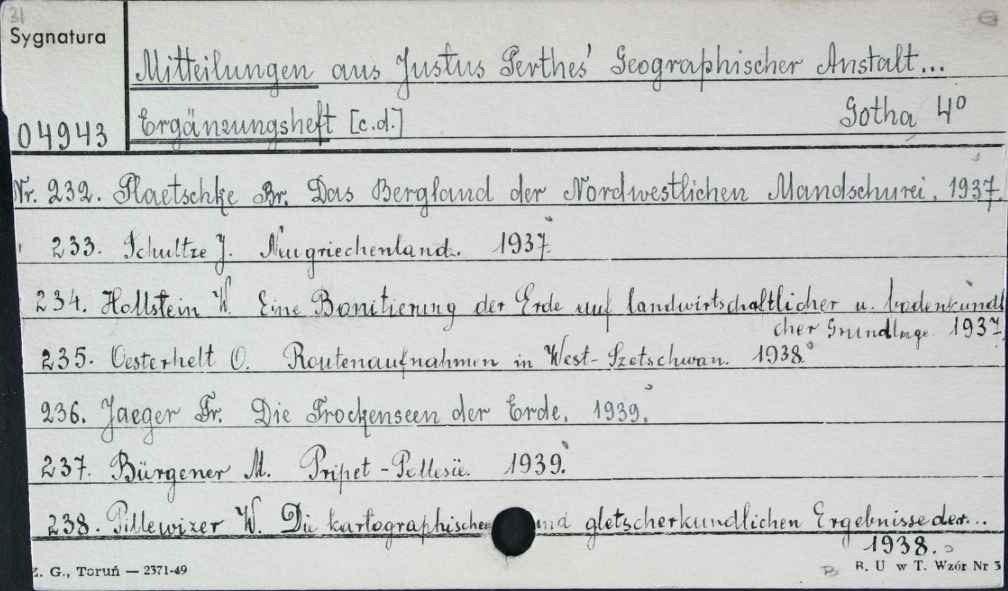 31
Sygnatura
Mitteilungen aus Justus Perthes' Geographischer Anstalt...
04943
Ergänzungsheft [c.d.] Gotha 4º
Nr. 232. Plaetschke Br. Das Bergland der Nordwestlichen Mandschurei. 1937.
233. Schultze J. Neugriechenland. 1937.
234. Hollstein W. Eine Bonitierung der Erde auf landwirtschaftlicher u. bodenkundl
cher Grundlage 1937
235. Oesterhelt O. Routenaufnahmen in West-Szetschwan. 1938.
236. Jaeger Fr. Die Trockenseen der Erde. 1939.
237. Bürgener M. Pripet-Polesie. 1939.
238. Pillewizer W. Die kartographischen und gletscherkundlichen Ergebnisse der...
1938.
Z. G., Toruń — 2371-49
B. U w T. Wzór Nr 3